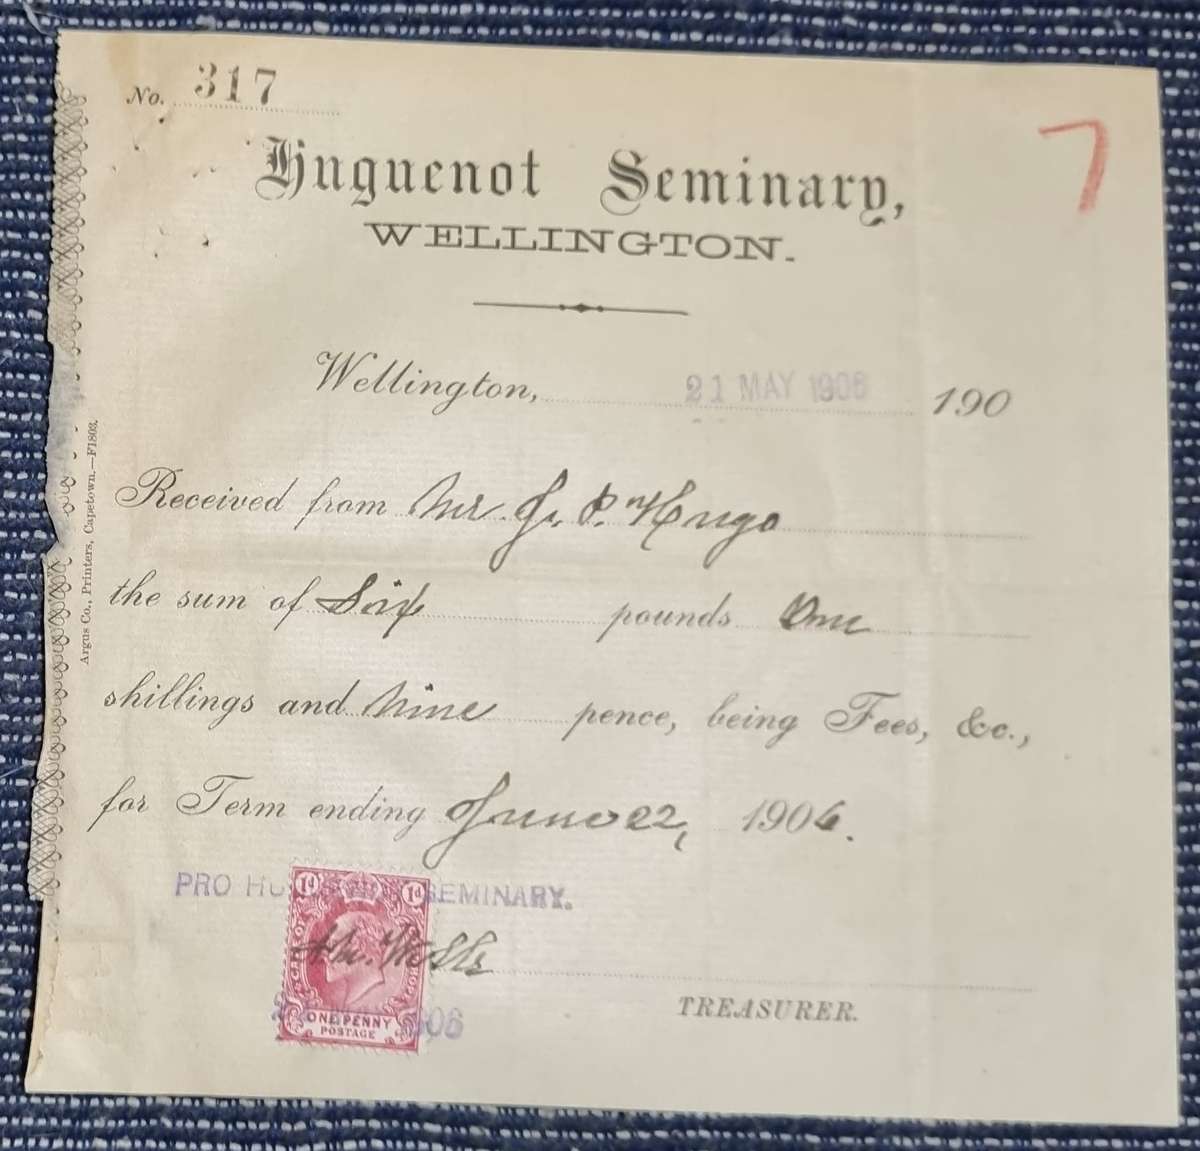 No. 317
7
Huguenot Seminary,
WELLINGTON.
Wellington, 21 MAY 1906 190
Received from Mr. J. P. Hugo
the sum of Six pounds One
shillings and Nine pence, being Fees, &c.,
for Term ending June 22, 1906.
PRO HU SEMINARY.
1d 1d
CAPE OF
ONE PENNY
POSTAGE
906
TREASURER.
Argus Co., Printers, Capetown.—F1803.